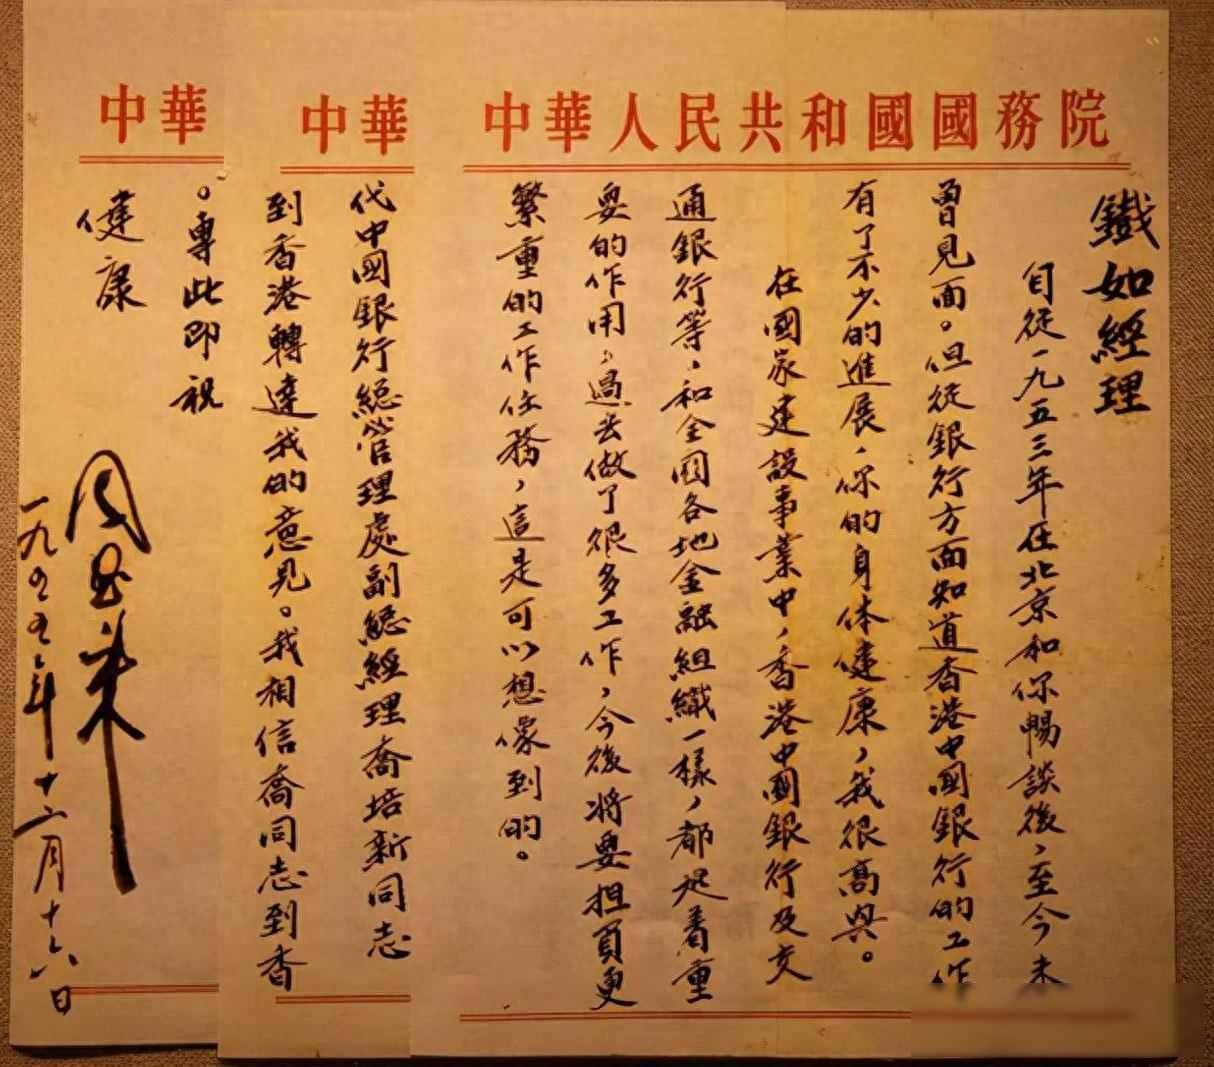 中華人民共和國國務院
鐵如經理
自從一九五三年在北京和你暢談後，至今未
曾見面。但從銀行方面知道香港中國銀行的工作
有了不少的進展，你的身体健康，我很高興。
在國家建設事業中，香港中國銀行及交
通銀行等，和全國各地金融組織一樣，都起着重
要的作用，過去做了很多工作，今後将要担負更
繁重的工作任務，這是可以想像到的。
中華
代中國銀行總管理處副總經理喬培新同志
到香港轉達我的意見。我相信喬同志到香
中華
。專此即祝
健康
周恩来
一九五五年十二月十六日